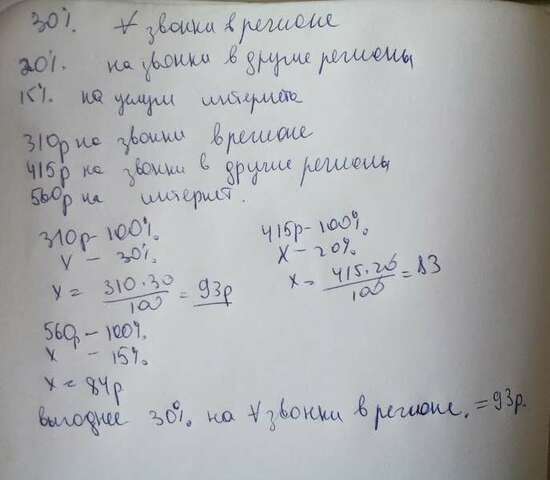 30% ∀ звонки в регионе
20% на звонки в другие регионы
15% на услуги интернета
310р на звонки в регионе
415р на звонки в другие регионы
560р на интернет.
310р - 100%
X - 30%
X = 310·30/100 = 93р
415р - 100%
X - 20%
X = 415·20/100 = 83
560р - 100%
X - 15%
X = 84р
выгоднее 30% на ∀ звонки в регионе. = 93р.